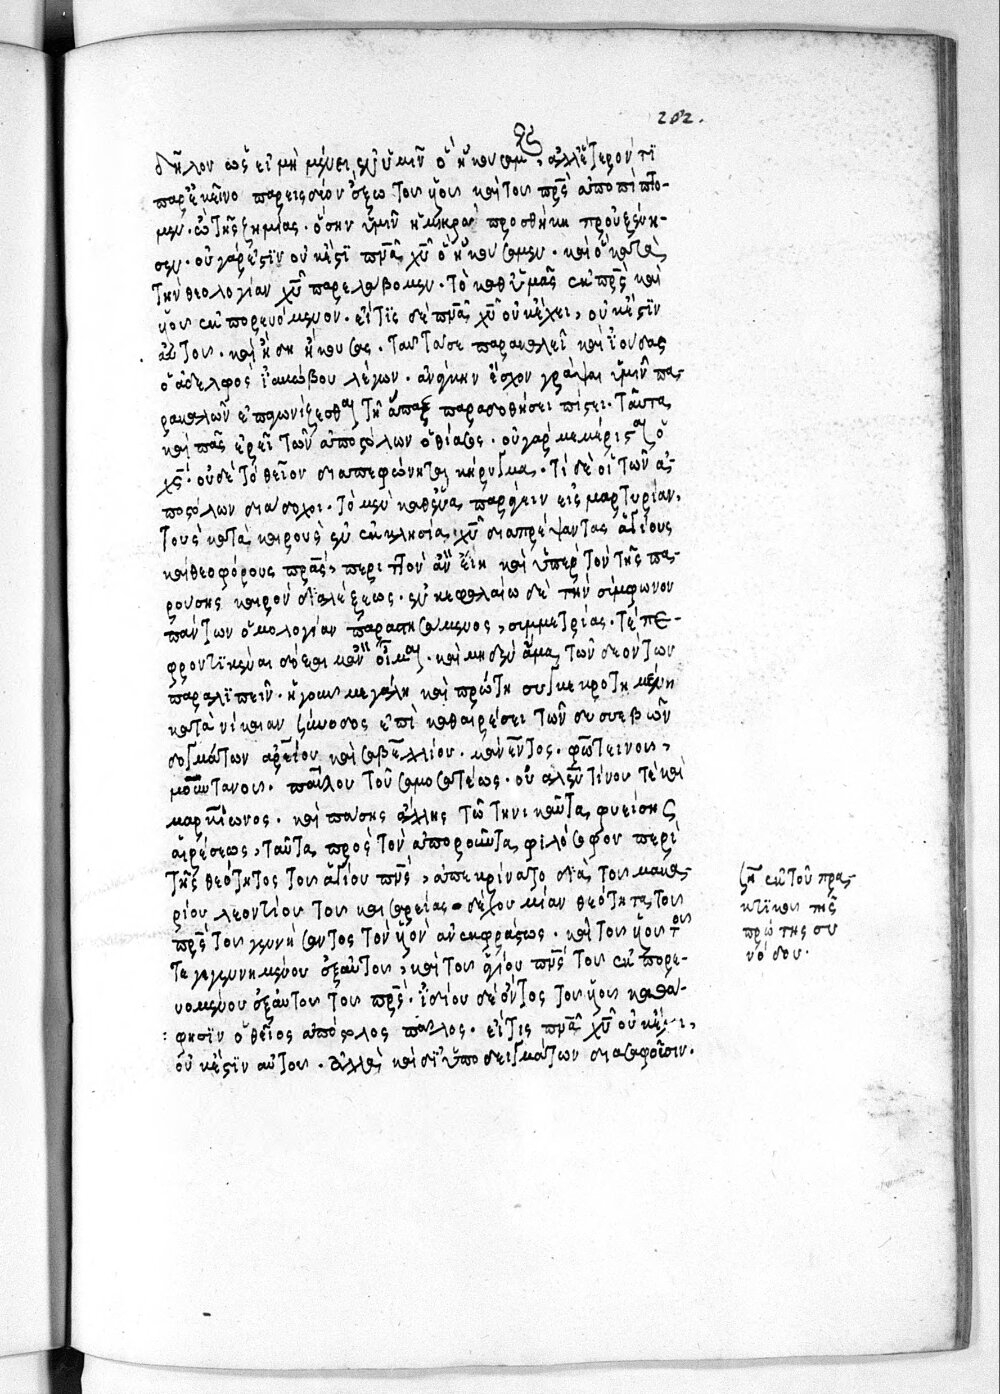 202.
δῆλον ὡς εἰ μὴ μένει ἐν ὑμῖν ὃ ἠκούσαμεν, ἀλλ' ἕτερόν τι
παρ' ἐκεῖνο παρεισιὸν ἔξω τοῦ υἱοῦ καὶ τοῦ πρς ἀποπίπτο-
μεν. ὢ τῆς ζημίας. ὅσην ὑμῖν ἡ μικρὰ προσθήκη προὐξένη-
σεν. οὐ γάρ ἐστιν οὐκ ἔστι πνα χυ ὃ ἠκούσαμεν. καὶ ὃ κατὰ
τὴν θεολογίαν χυ παρελάβομεν. τὸ καθ' ὑμᾶς ἐκ πρς καὶ
υἱοῦ ἐκπορευόμενον. εἴ τις δὲ πνα χυ οὐκ ἔχει, οὐκ ἔστιν
αὐτοῦ. καὶ ἤδη ἤκουσας. ταῦτα δὲ παρακαλεῖ καὶ ἰούδας
ὁ ἀδελφὸς ἰακώβου λέγων. ἀνάγκην ἔσχον γράψαι ὑμῖν πα-
ρακαλῶν ἐπαγωνίζεσθαι τῇ ἅπαξ παραδοθήσει πίστει. ταῦτα
καὶ πᾶς ἐρεῖ τῶν ἀποστόλων ὁ θίασος. οὐ γὰρ μεμέρισται ὁ
χς. οὐδὲ τὸ θεῖον διαπεφώνηται κήρυγμα. τί δὲ οἱ τῶν ἀ-
ποστόλων διάδοχοι. τὸ μὲν καθένα παράγειν εἰς μαρτυρίαν,
τοὺς κατὰ καιροὺς ἐν ἐκκλησίᾳ χυ διαπρέψαντας ἁγίους
καὶ θεοφόρους πρας, περιττὸν ἂν εἴη καὶ ὑπὲρ τὸν τῆς πα-
ρούσης καιρὸν διαλέξεως. ἐν κεφαλαίω δὲ τὴν σύμφωνον
πάντων ὁμολογίαν παραστησάμενος, συμμετρίας. τε πε-
φροντικέναι δόξαι μὲν οἶμαι. καὶ μηδὲν ἅμα τῶν δεόντων
παραλιπεῖν. ἡ γοῦν μεγάλη καὶ πρώτη συγκεκροτημένη
κατὰ νίκαιαν σύνοδος ἐπὶ καθαιρέσει τῶν δυσσεβῶν
δογμάτων ἀρείου καὶ σαβελλίου. μάνεντος. φωτεινοῦ,
μοντανοῦ. παύλου τοῦ σαμοσατέως. οὐαλεντίνου τὲ καὶ
μαρκίωνος. καὶ πάσης ἄλλης τῶ τηνικαῦτα φυείσης
αἱρέσεως, ταῦτα πρὸς τὸν ἀποροῦντα φιλόσοφον περὶ
τῆς θεότητος τοῦ ἁγίου πνς, ἀπεκρίνατο διὰ τοῦ μακα-
ρίου λεοντίου τοῦ καισαρείας. δέχου μίαν θεότητα τοῦ
πρς τοῦ γεννήσαντος τὸν υἱὸν ἀνεκφράστως. καὶ τοῦ υἱοῦ τοῦ
γεγεννημένου ἐξ αὐτοῦ, καὶ τοῦ ἁγίου πνς τοῦ ἐκπορε-
υομένου ἐξ αὐτοῦ τοῦ πρς. ἰδίου δὲ ὄντος τοῦ υἱοῦ καθά
φησιν ὁ θεῖος ἀπόστολος παῦλος. εἴ τις πνα χυ οὐκ ἔχει,
οὐκ ἔστιν αὐτοῦ. ἀλλὰ καὶ δι' ὑποδειγμάτων διασαφοῦσιν.
ἐκ τοῦ πρα-
κτικοῦ τῆς
πρώτης συ
νόδου.